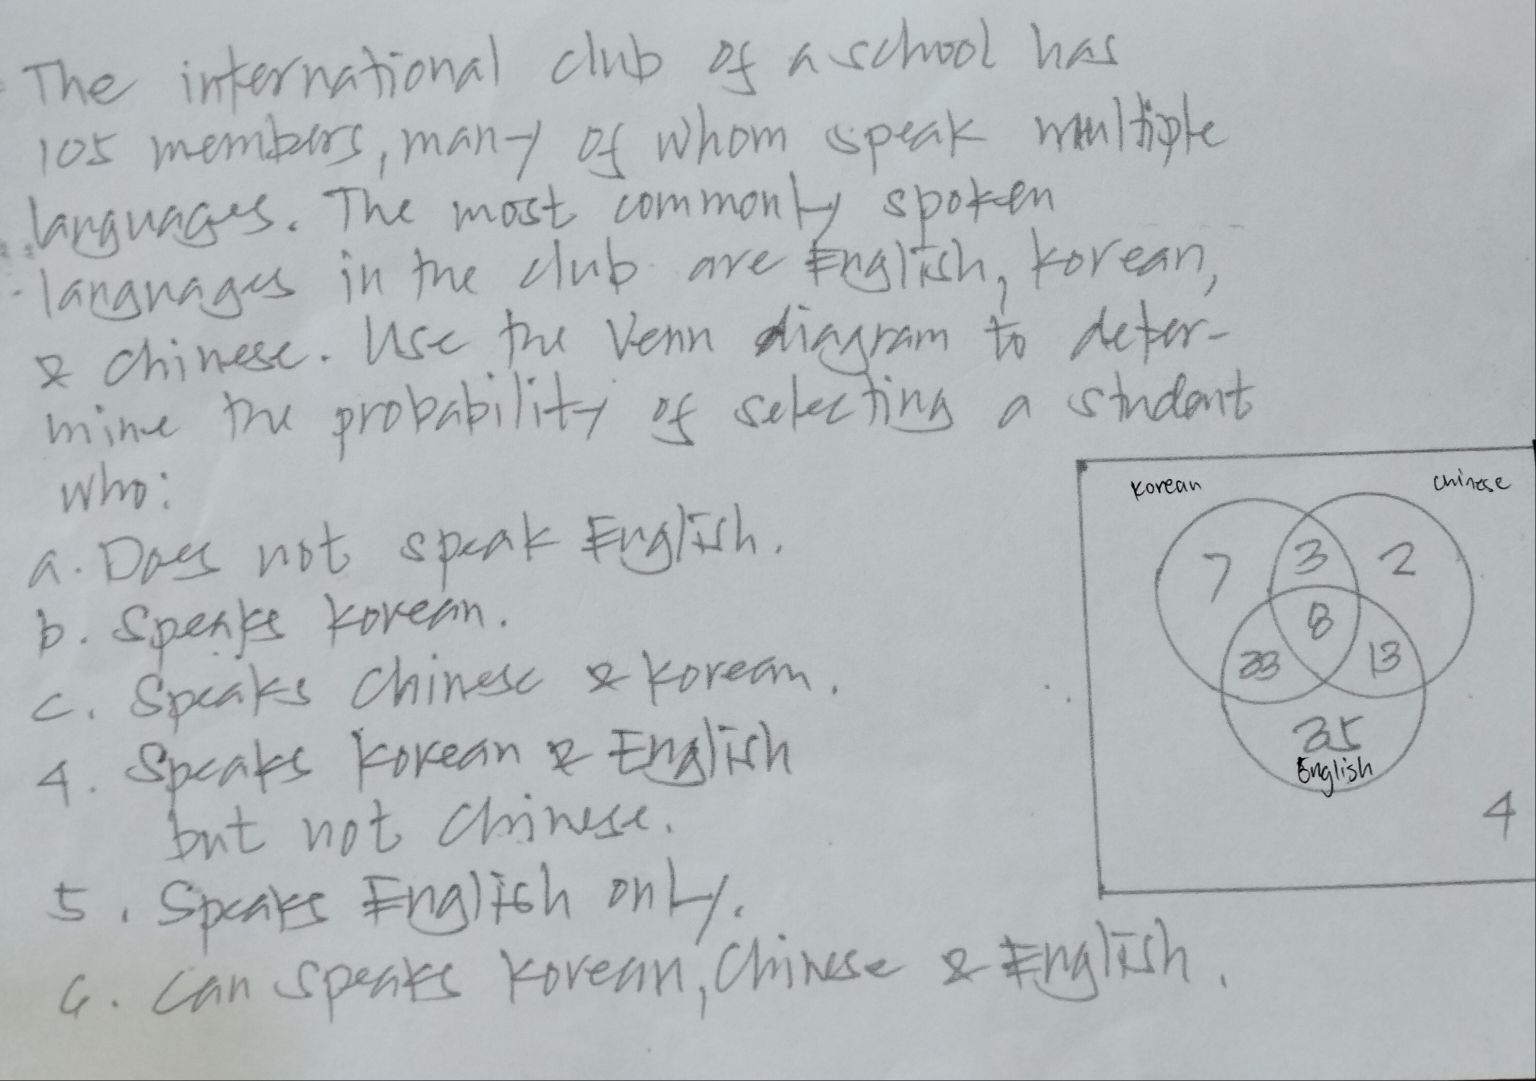 The international club of a school has
105 members, many of whom speak multiple
languages. The most commonly spoken
languages in the club are English, Korean,
& Chinese. Use the Venn diagram to deter-
mine the probability of selecting a student
who:
a. Does not speak English.
b. Speaks Korean.
c. Speaks Chinese & Korean.
4. Speaks Korean & English
but not Chinese.
5. Speaks English only.
6. Can speaks Korean, Chinese & English.
Korean
Chinese
7
3
2
8
33
13
35
English
4